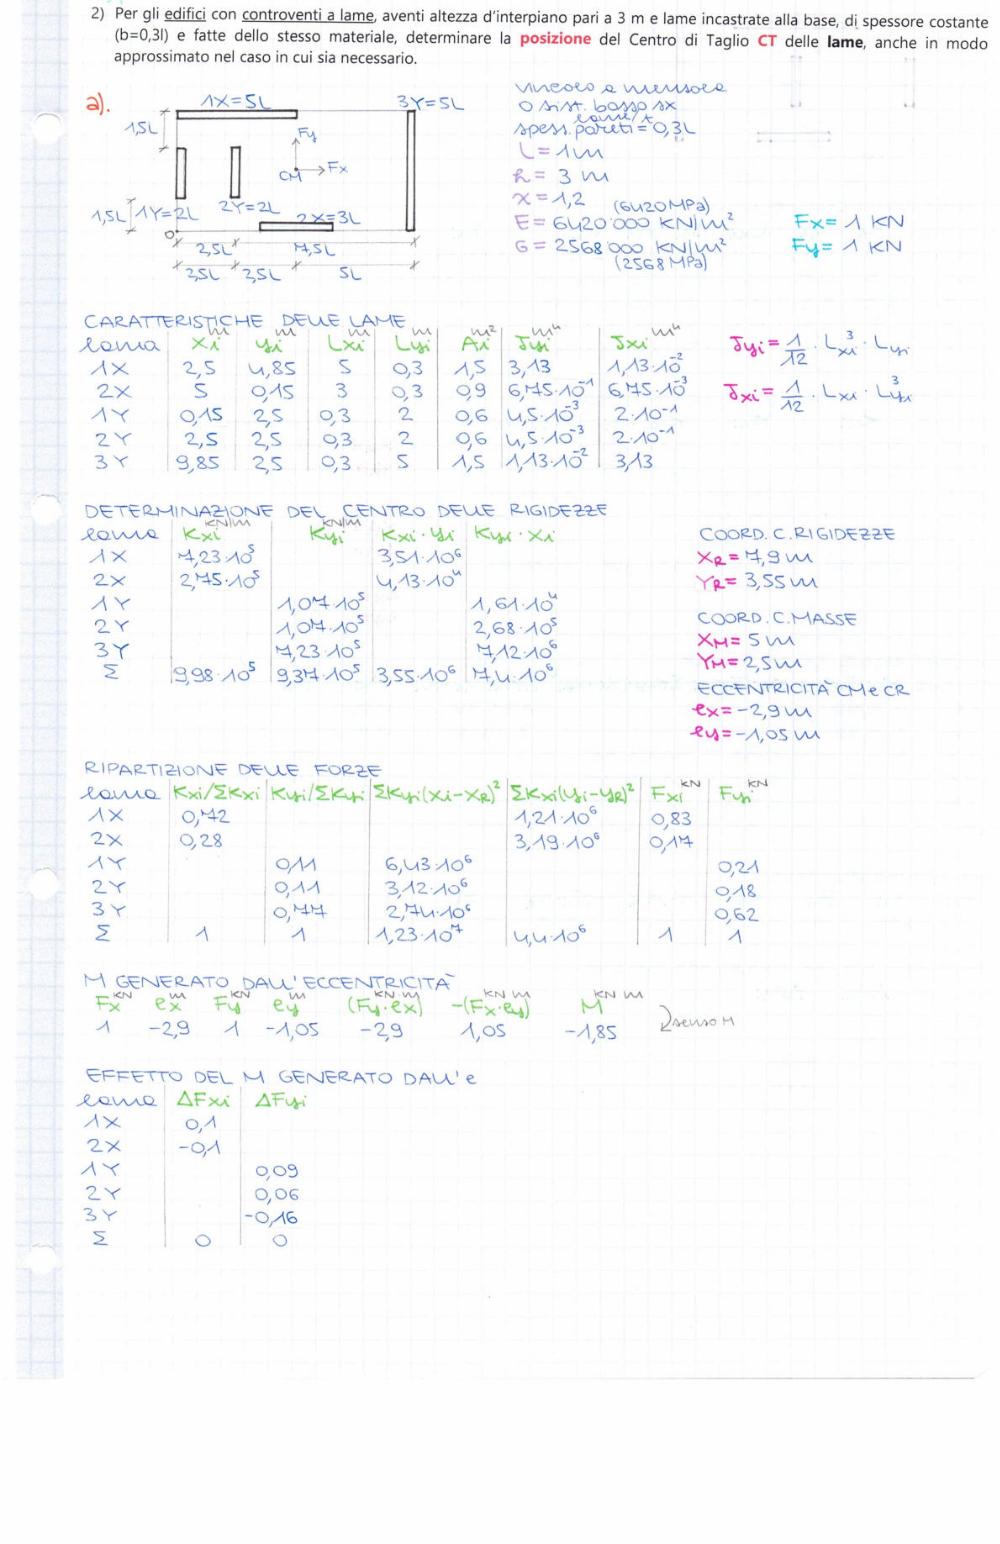 2) Per gli edifici con controventi a lame, aventi altezza d'interpiano pari a 3 m e lame incastrate alla base, di spessore costante
(b=0,3l) e fatte dello stesso materiale, determinare la posizione del Centro di Taglio CT delle lame, anche in modo
approssimato nel caso in cui sia necessario.
a).
1X=5L
3Y=5L
1,5L
Fy
CM
Fx
1,5L
1Y=2L
2Y=2L
2X=3L
0
2,5L
7,5L
2,5L
2,5L
5L
vincolo a mensola
0 sist. basso sx
lame/x
spess. pareti=0,3L
L=1m
h= 3 m
X=1,2
(6420MPa)
E=6420000 KN/m²
G=2568000 KN/m²
(2568MPa)
Fx= 1 KN
Fy= 1 KN
CARATTERISTICHE DELLE LAME
lama Xi m yi m Lxi m Lyi m Ai m² Jyi m⁴ Jxi m⁴
1X 2,5 4,85 5 0,3 1,5 3,13 1,13·10⁻²
2X 5 0,15 3 0,3 0,9 6,75·10⁻¹ 6,75·10⁻³
1Y 0,15 2,5 0,3 2 0,6 4,5·10⁻³ 2·10⁻¹
2Y 2,5 2,5 0,3 2 0,6 4,5·10⁻³ 2·10⁻¹
3Y 9,85 2,5 0,3 5 1,5 1,13·10⁻² 3,13
Jyi= 1/12 · Lxi³ · Lyi
Jxi= 1/12 · Lxi · Lyi³
DETERMINAZIONE DEL CENTRO DELLE RIGIDEZZE
lama Kxi KN/m Kyi KN/m Kxi·yi Kyi·Xi
1X 7,23·10⁵ 3,51·10⁶
2X 2,75·10⁵ 4,13·10⁴
1Y 1,07·10⁵ 1,61·10⁴
2Y 1,07·10⁵ 2,68·10⁵
3Y 7,23·10⁵ 7,12·10⁶
Σ 9,98·10⁵ 9,37·10⁵ 3,55·10⁶ 7,4·10⁶
COORD. C. RIGIDEZZE
XR= 7,9 m
YR= 3,55 m
COORD. C. MASSE
XM= 5 m
YM= 2,5 m
ECCENTRICITÀ CM e CR
ex= -2,9 m
ey= -1,05 m
RIPARTIZIONE DELLE FORZE
lama Kxi/ΣKxi Kyi/ΣKyi ΣKyi(Xi-XR)² ΣKxi(yi-yR)² Fxi KN Fyi KN
1X 0,72 1,21·10⁶ 0,83
2X 0,28 3,19·10⁶ 0,17
1Y 0,11 6,43·10⁶ 0,21
2Y 0,11 3,12·10⁶ 0,18
3Y 0,77 2,74·10⁶ 0,62
Σ 1 1 1,23·10⁷ 4,4·10⁶ 1 1
M GENERATO DALL'ECCENTRICITÀ
Fx KN ex m Fy KN ey m (Fy·ex) KN m -(Fx·ey) KN m M KN m
1 -2,9 1 -1,05 -2,9 1,05 -1,85 senso M
EFFETTO DEL M GENERATO DALL'e
lama ΔFxi ΔFyi
1X 0,1
2X -0,1
1Y 0,09
2Y 0,06
3Y -0,16
Σ 0 0